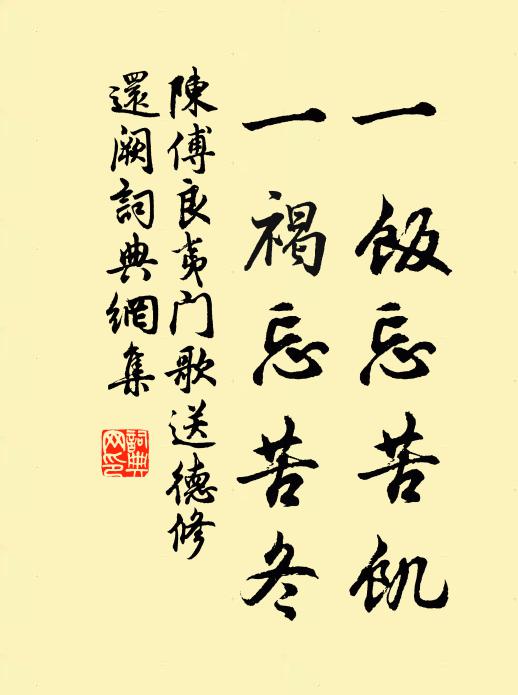 一飯忘苦飢
一褐忘苦冬
陳傅良夷门歌送德修
還阙詞典網集
詞典网印